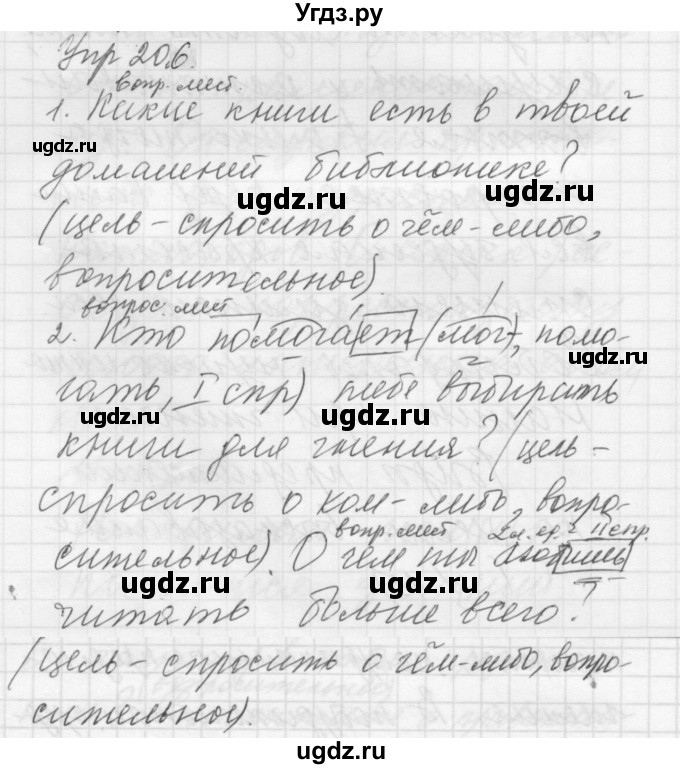 Угдз.ру
Упр 206.
вопр. мест.
1. Какие книги есть в твоей
ugdz.ru
домашней библиотике?
ugdz.ru ugdz.ru
(цель - спросить о чём-либо,
вопросительное).
вопрос. мест
2. Кто помогает (мог-, помо-
ugdz.ru
гать, I спр) тебе выбирать
ugdz.ru ugdz.ru
книги для чтения? (цель -
спросить о ком-либо, вопро-
вопр. мест 2 л. ед. ч II спр.
сительное). О чем ты любишь
ugdz.ru ugdz.ru
читать больше всего?
(цель - спросить о чём-либо, вопро-
сительное).
ugdz.ru